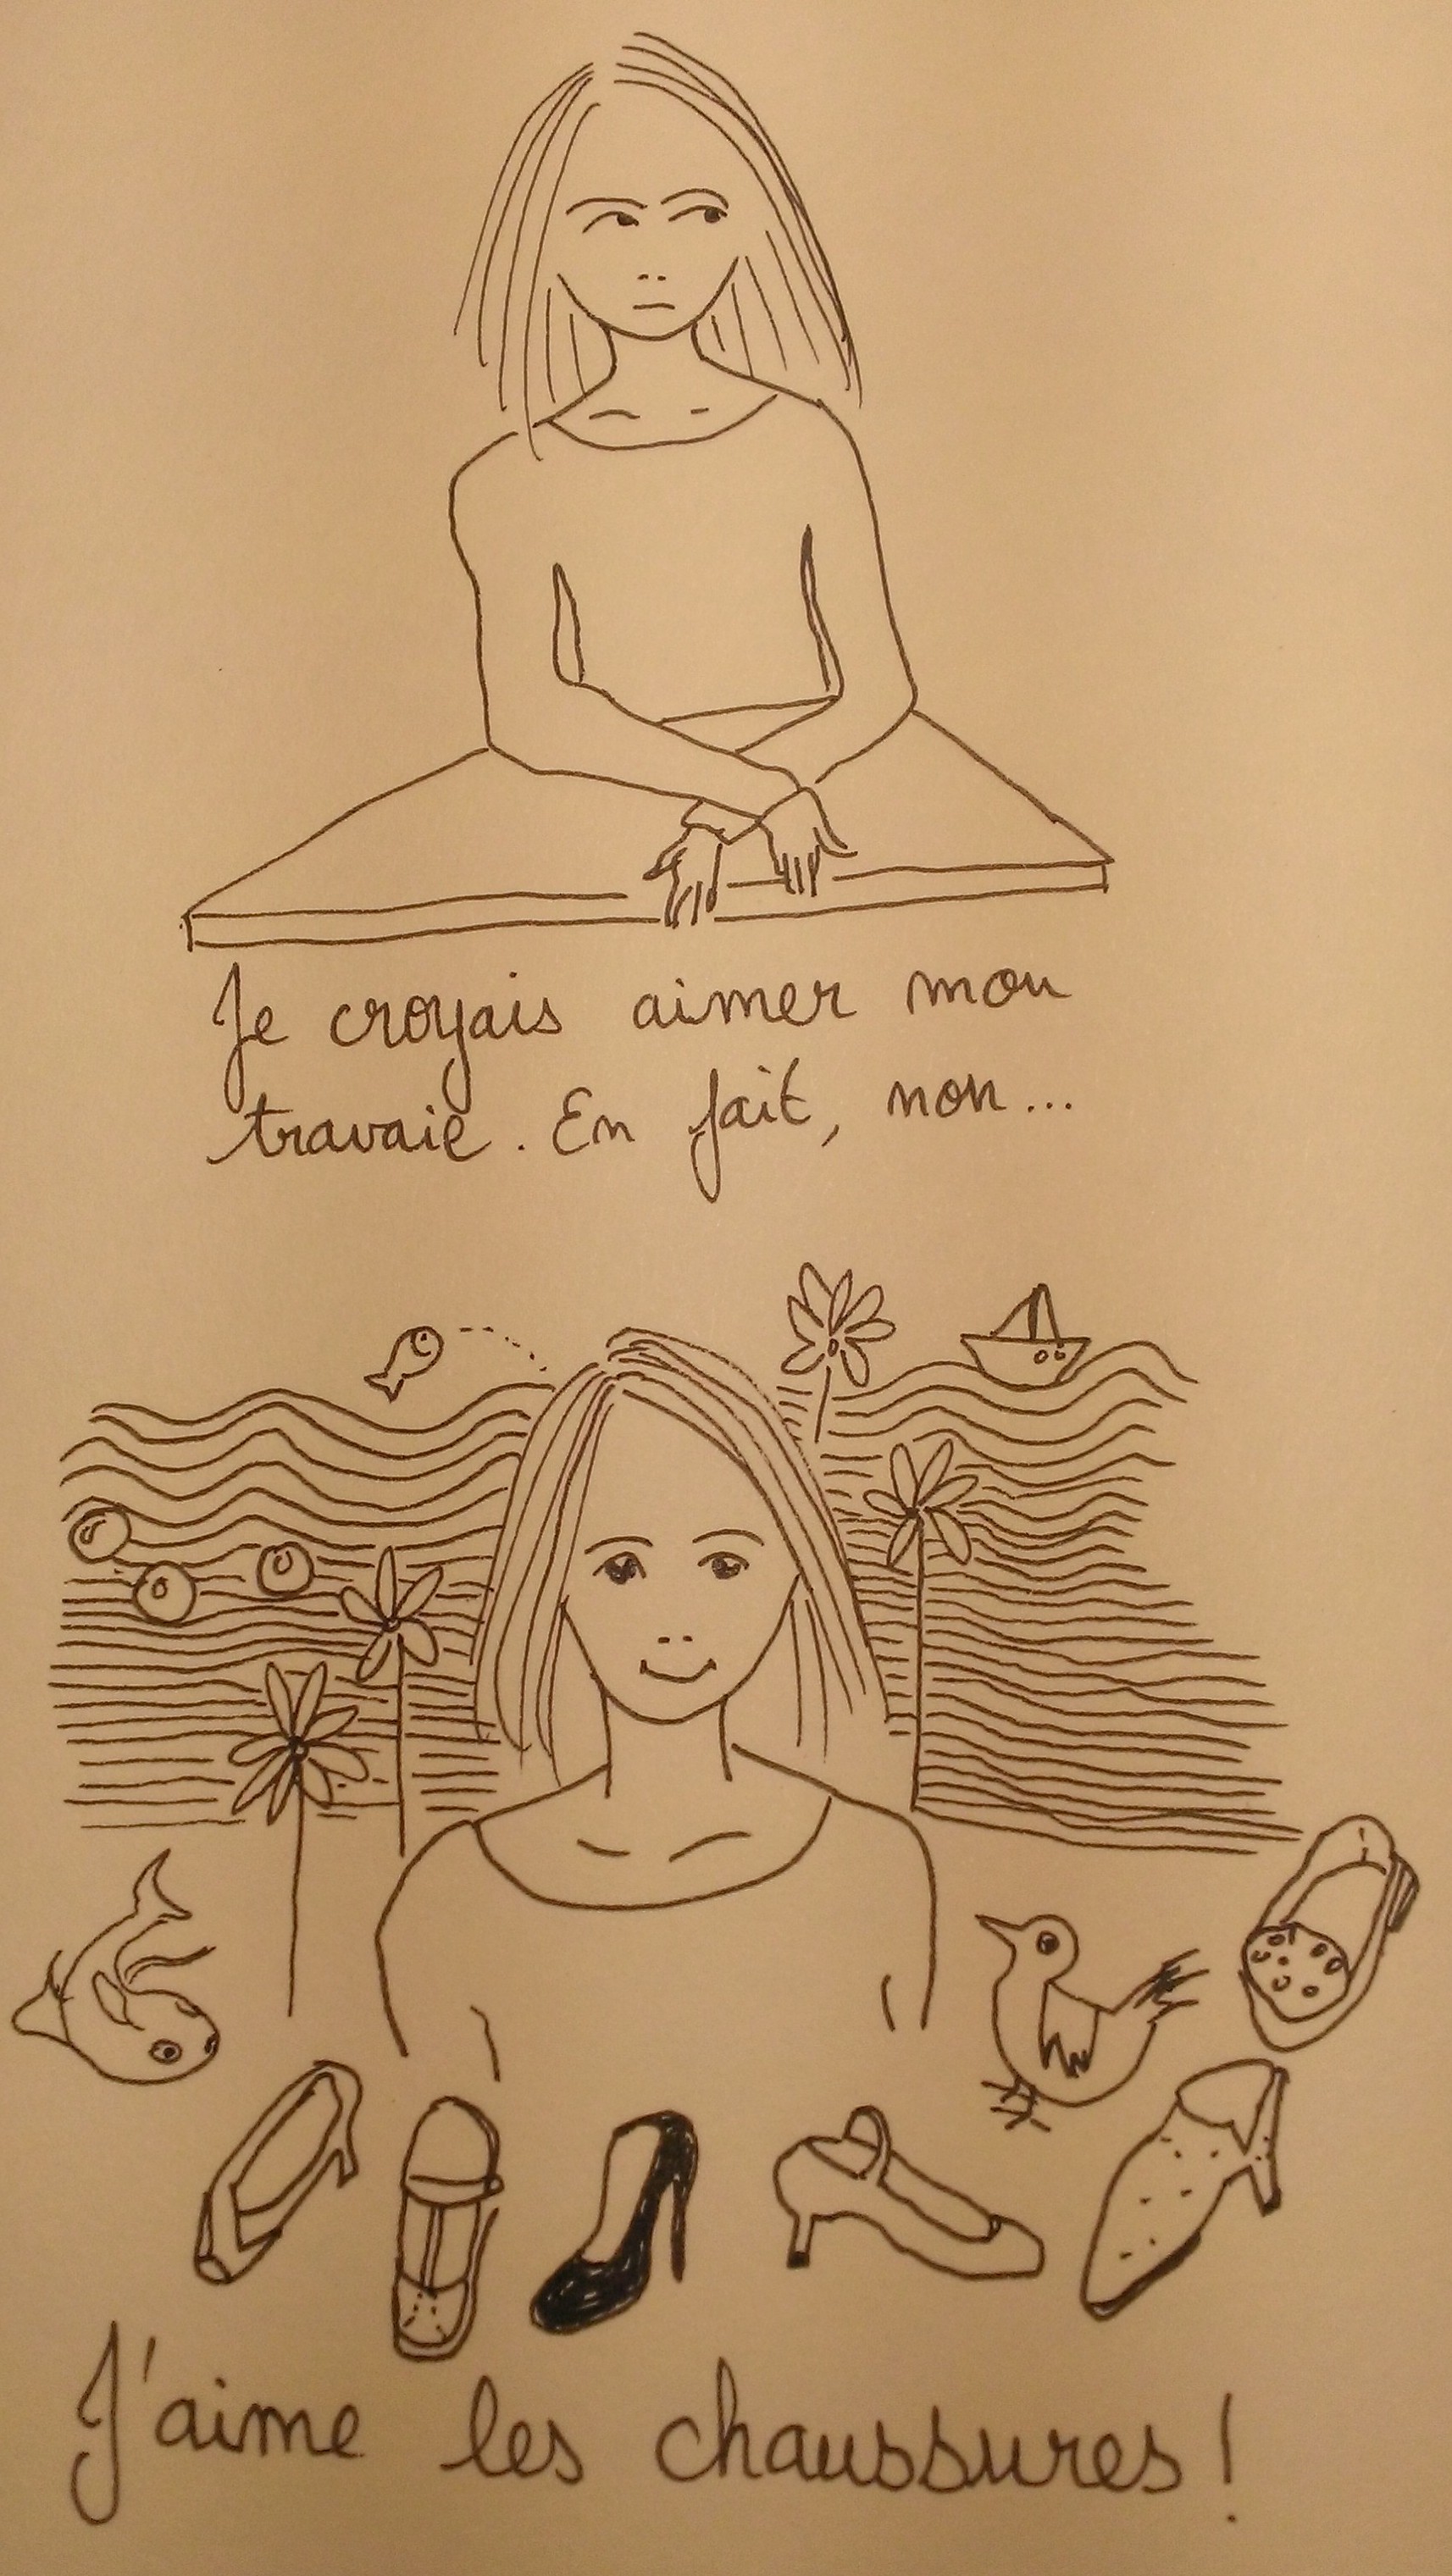 Je croyais aimer mon
travail. En fait, non...
J'aime les chaussures !